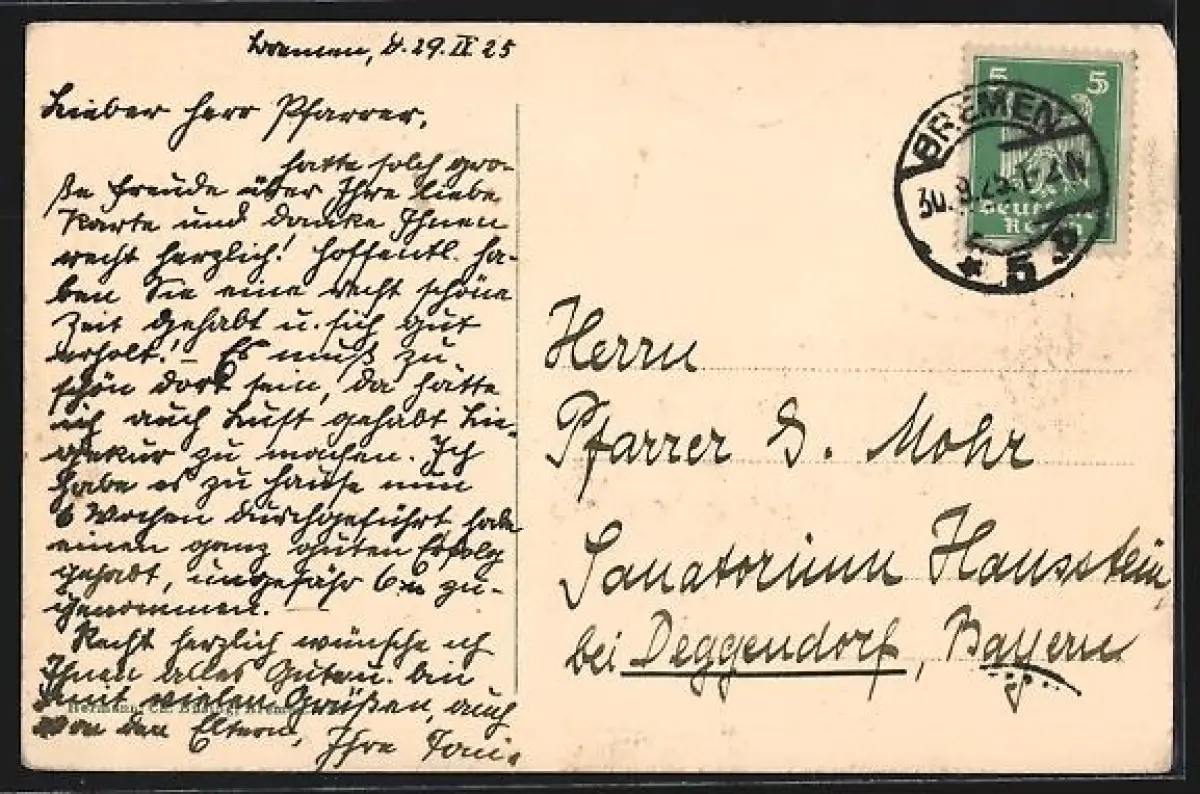 Bremen, d. 29. IX 25
Lieber Herr Pfarrer,
hatte solch gro-
ße Freude über Ihre liebe
Karte und danke Ihnen
recht herzlich! Hoffentl. ha-
ben Sie eine recht schöne
Zeit gehabt u. sich gut
erholt! – Es muß zu
schön dort sein, da hätte
ich auch Lust gehabt Lie-
gekur zu machen. Ich
habe es zu Hause nun
6 Wochen durchgeführt habe
einen ganz guten Erfolg
gehabt, ungefähr 6 zu-
genommen. –
Recht herzlich wünsche ich
Ihnen alles Gute u. bin
mit vielen Grüßen, auch
von den Eltern, Ihre Toni.
Hermann Bremen
5 5
Deutsches
Reich
BREMEN
30.9.25.1-2N
* 5 g
Herrn
Pfarrer S. Mohr
Sanatorium Hausstein,
bei Deggendorf, Bayern